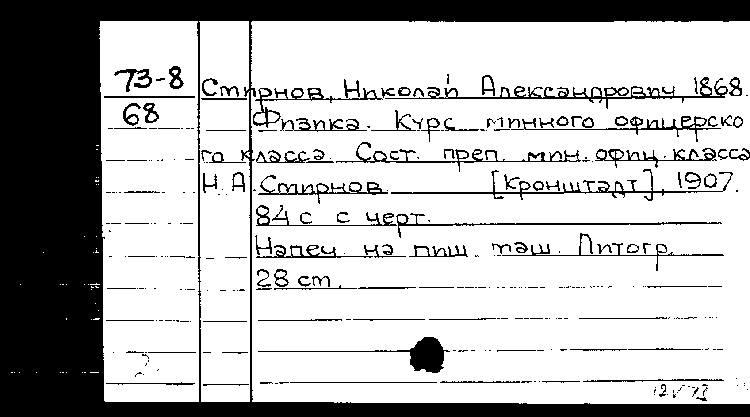 73-8
68
Смирнов, Николай Александрович, 1868.
Физика. Курс минного офицерско
го класса. Сост. преп. мин. офиц. класса
Н. А. Смирнов. [Кронштадт], 1907.
84 с. с черт.
Напеч. на пиш. маш. Литогр.
28 см.
2